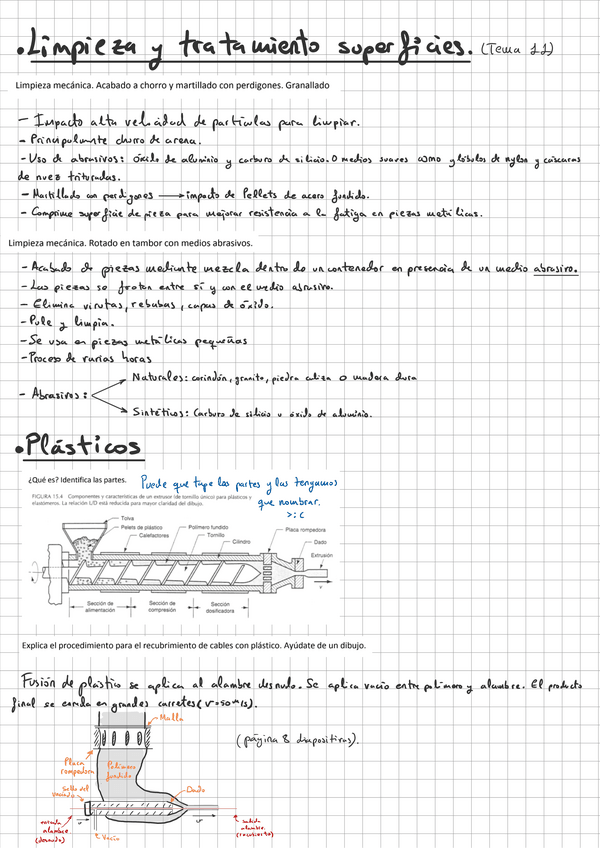 • Limpieza y tratamiento superficies. (Tema 11)
Limpieza mecánica. Acabado a chorro y martillado con perdigones. Granallado
- Impacto alta velocidad de partículas para limpiar.
- Principalmente chorro de arena.
- Uso de abrasivos: óxido de aluminio y carburo de silicio. O medios suaves como glóbulos de nylon y cáscaras
de nuez trituradas.
- Martillado con perdigones → impacto de Pellets de acero fundido.
- Comprime superficie de pieza para mejorar resistencia a la fatiga en piezas metálicas.
Limpieza mecánica. Rotado en tambor con medios abrasivos.
- Acabado de piezas mediante mezcla dentro de un contenedor en presencia de un medio abrasivo.
- Las piezas se frotan entre sí y con el medio abrasivo.
- Elimina virutas, rebabas, capas de óxido.
- Pule y limpia.
- Se usa en piezas metálicas pequeñas
- Proceso de varias horas
Naturales: corindón, granito, piedra caliza o madera dura
- Abrasivos:
Sintéticos: Carburo de silicio u óxido de aluminio.
• Plásticos
¿Qué es? Identifica las partes.
Puede que tape las partes y las tengamos
que nombrar.
>:C
FIGURA 15.4 Componentes y características de un extrusor (de tornillo único) para plásticos y
elastómeros. La relación L/D está reducida para mayor claridad del dibujo.
Tolva
Pelets de plástico
Calefactores
Polímero fundido
Tornillo
Cilindro
Placa rompedora
Dado
Extrusión
v
Sección de
alimentación
Sección de
compresión
Sección
dosificadora
Explica el procedimiento para el recubrimiento de cables con plástico. Ayúdate de un dibujo.
Fusión de plástico se aplica al alambre desnudo. Se aplica vacío entre polímero y alambre. El producto
final se enrolla en grandes carretes (v=50 m/s).
Malla
(página 8 diapositivas).
Placa
rompedora
Polímero
fundido
Sello del
vaciado
Dado
entrada
alambre
(desnudo)
v
Vacío
v
salida
alambre
(recubierto)